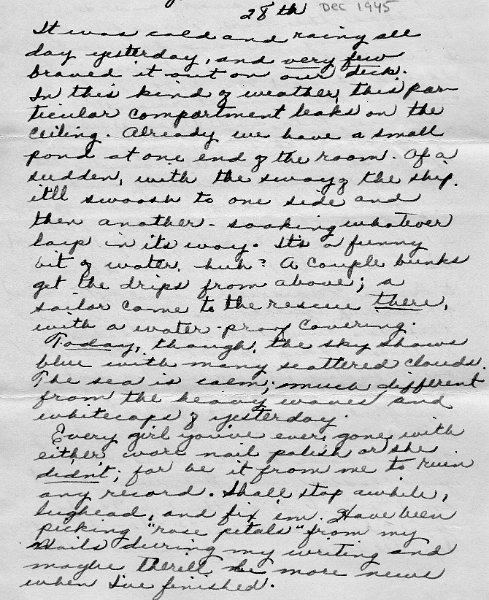 28th Dec 1945
It was cold and rainy all
day yesterday, and very few
braved it out on our deck.
In this kind of weather, this par-
ticular compartment leaks on the
ceiling. Already we have a small
pond at one end of the room. Of a
sudden, with the sway of the ship,
it'll swoosh to one side and
then another - soaking whatever
in its way. It's a funny
bit of water, huh? A couple bunks
get the drips from above; a
sailor came to the rescue there,
with a water-proof covering.
Today, though, the sky shows
blue with many scattered clouds.
The sea is calm; much different
from the heavy waves and
whitecaps of yesterday.
Every girl you've ever gone with
either wore nail polish or she
didn't; far be it from me to ruin
any record. Shall stop awhile,
bughead, and fix 'em. Have been
picking "rose petals" from my
nails during my writing and
maybe there'll be more news
when I've finished.